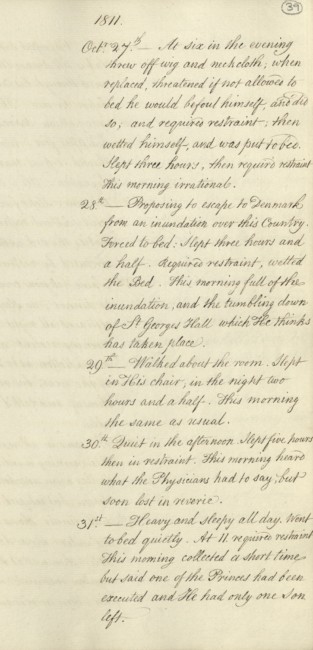 39
1811.
Octr. 27th. — At six in the evening
threw off wig and neckcloth; when
replaced, threatened if not allowed to
bed he would befoul himself, and did
so; and required restraint; then
wetted himself, and was put to bed.
Slept three hours, then required restraint
This morning irrational.
28th — Proposing to escape to Denmark
from an inundation over this Country.
Forced to bed: Slept three hours and
a half. Required restraint, wetted
the Bed. This morning full of the
inundation, and the tumbling down
of St. Georges Hall which He thinks
has taken place.
29th — Walked about the room. Slept
in His chair, in the night two
hours and a half. This morning
the same as usual.
30th Quiet in the afternoon. Slept five hours
then in restraint. This morning heard
what the Physicians had to say; but
soon lost in reverie.
31st — Heavy and sleepy all day. Went
to bed quietly. At 11 required restraint
This morning collected a short time
but said one of the Princes had been
executed and He had only one Son
left.